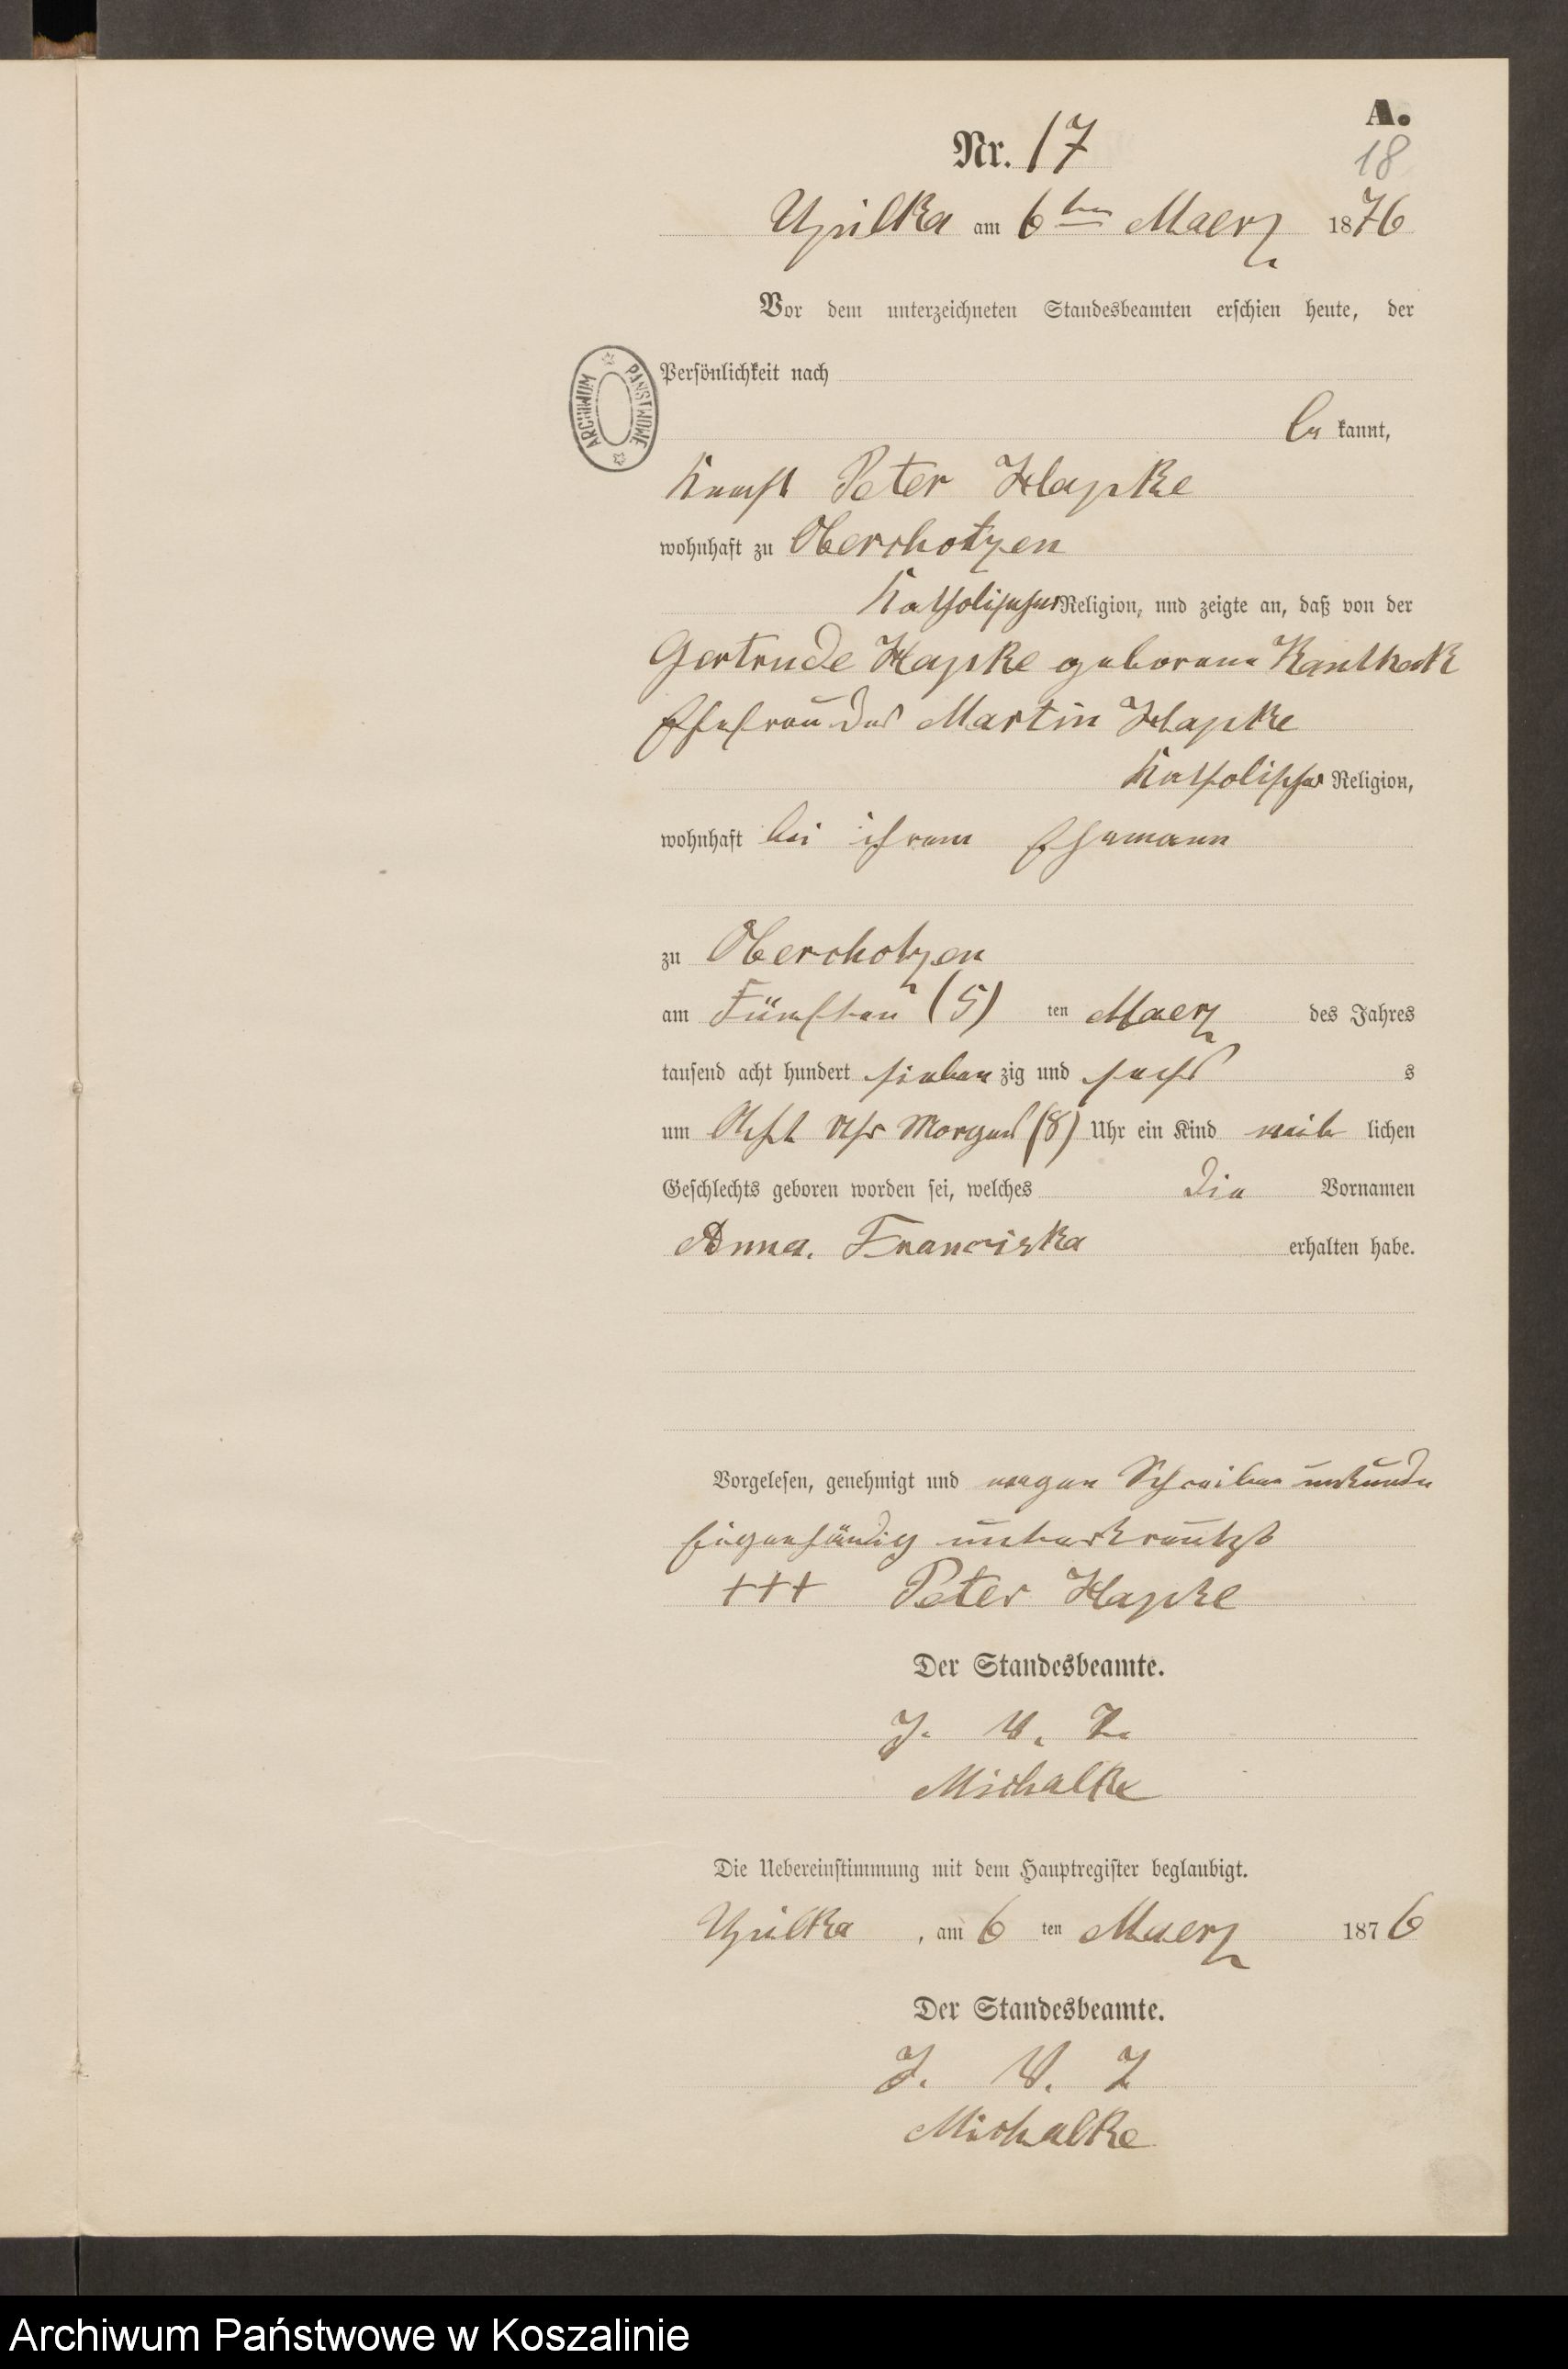 A.
Nr. 17
18
Upilka am 6ten Maerz 1876
Vor dem unterzeichneten Standesbeamten erschien heute, der
Persönlichkeit nach
ARCHIWUM PAŃSTWOWE
be kannt,
Knecht Peter Hapke
wohnhaft zu Oberchotzen
Katholischer Religion, und zeigte an, daß von der
Gertrude Hapke geborene
Ehefrau des Martin Hapke
Katholischer Religion,
wohnhaft bei ihrem Ehemann
zu Oberchotzen
am Fünften (5) ten Maerz des Jahres
tausend acht hundert sieben zig und sechs s
um Acht Uhr Morgens (8) Uhr ein Kind weib lichen
Geschlechts geboren worden sei, welches die Vornamen
Anna. Franciska erhalten habe.
Vorgelesen, genehmigt und wegen Schreibens unkunde
Eigenhändig unterkreutzt
+++ Peter Hapke
Der Standesbeamte.
J. V.
Michalke
Die Uebereinstimmung mit dem Hauptregister beglaubigt.
Upilka , am 6 ten Maerz 1876
Der Standesbeamte.
J. V.
Michalke
Archiwum Państwowe w Koszalinie